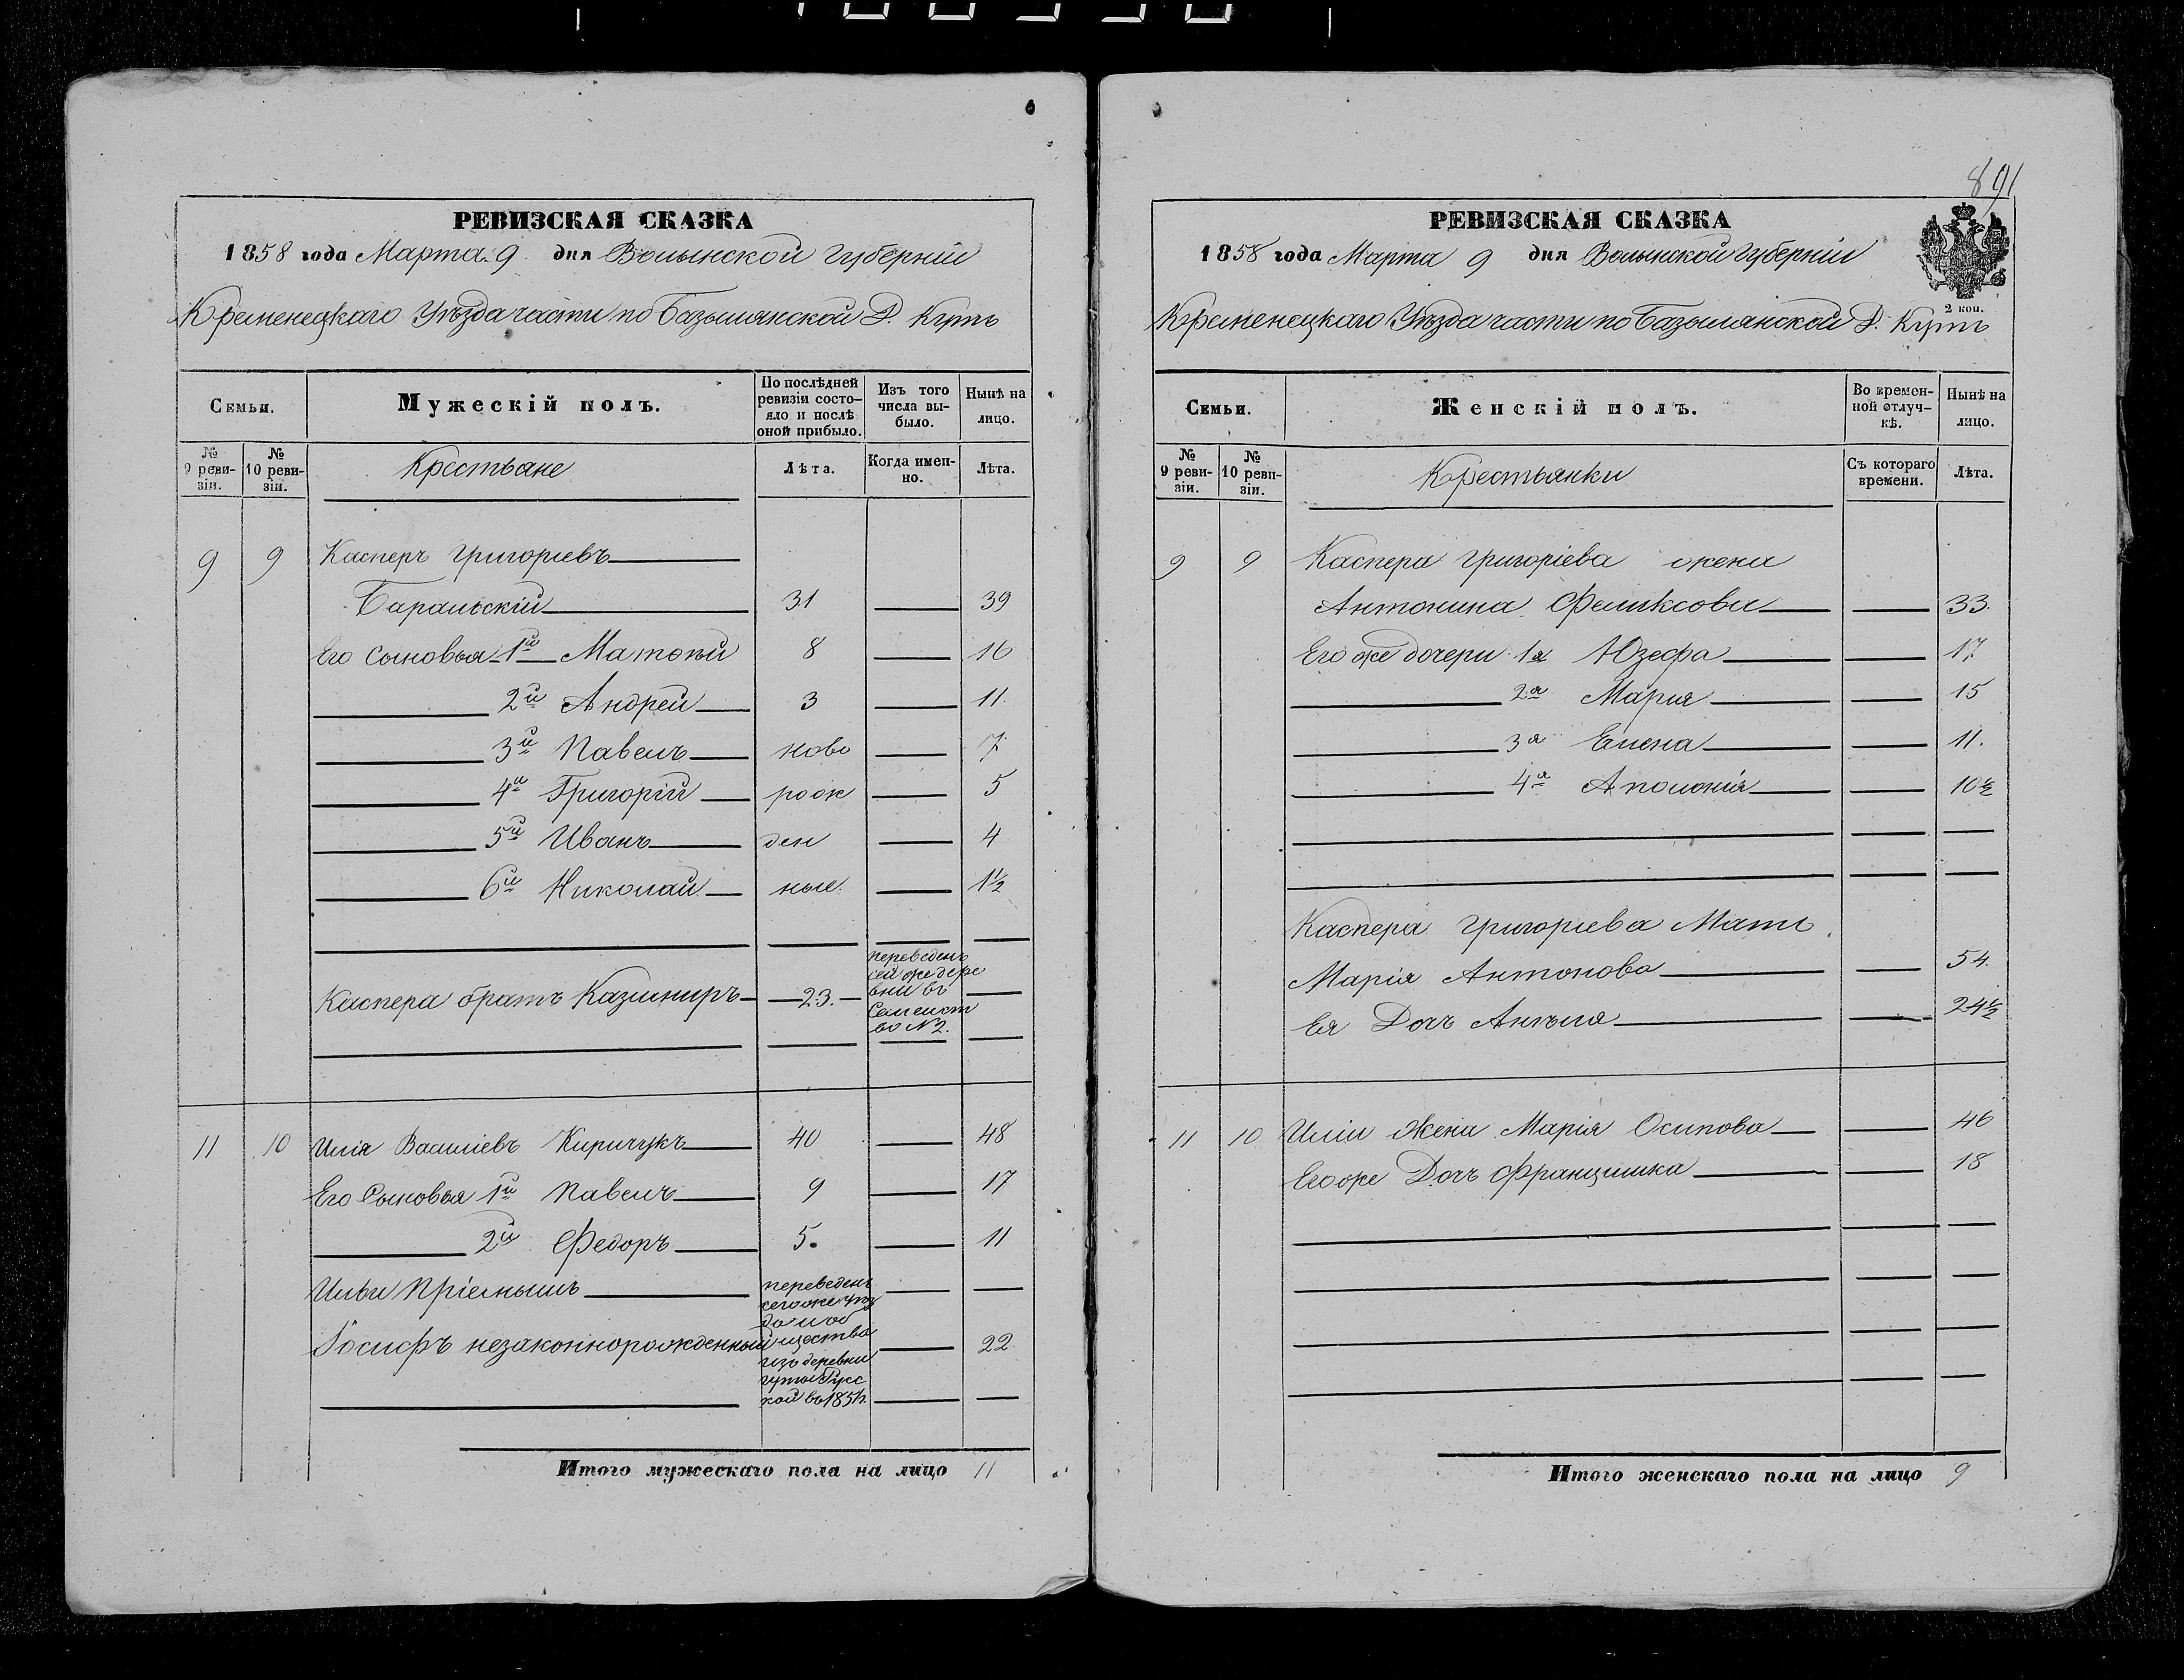 891
РЕВИЗСКАЯ СКАЗКА
1858 года Марта 9 дня Волынской Губерніи
Кременецкаго Уѣзда части по Базылянской Д. Кутъ
Семьи.
Мужескій полъ.
По послѣдней ревизіи состояло и послѣ оной прибыло.
Изъ того числа выбыло.
Нынѣ на лицо.
№ 9 ревизіи.
№ 10 ревизіи.
Крестьане
Лѣта.
Когда именно.
Лѣта.
9 9 Касперъ Григоріевъ
Баральскій 31 39
Его Сыновья 1й Матѳѣй 8 16
2й Андрей 3 11.
3й Павелъ ново 7
4й Григорій рож 5
5й Иванъ ден 4
6й Николай ные. 1½
Каспера братъ Казимиръ 23.
переведенъ
сей же дере
вни въ
Семейст
во №2.
11 10 Илія Василіевъ Киричукъ 40 48
Его Сыновья 1й Павелъ 9 17
2й Федоръ 5. 11
Ильи Пріемышъ
Іосифъ незаконнорожденный 22
переведенъ
сегоже уѣз
да и об
щества
изъ деревни
гуты Рус
кой въ 185
Итого мужескаго пола на лицо 11
РЕВИЗСКАЯ СКАЗКА
1858 года Марта 9 дня Волынской Губерніи
2 коп.
Кременецкаго Уѣзда части по Базылянской Д. Кутъ
Семьи.
Женскій полъ.
Во временной отлучкѣ.
Нынѣ на лицо.
№ 9 ревизіи.
№ 10 ревизіи.
Крестьянки
Съ котораго времени.
Лѣта.
9 9 Каспера Григоріева жена
Антонина Феликсова 33.
Его же дочери 1я Юзефа 17
2я Марія 15
3я Елена 11.
4я Аполонія 10½
Каспера Григоріева Мать
Марія Антонова 54.
Ея Дочъ Анѣля 24½
11 10 Иліи Жена Марія Осипова 46
Егоже Дочъ Францишка 18
Итого женскаго пола на лицо 9